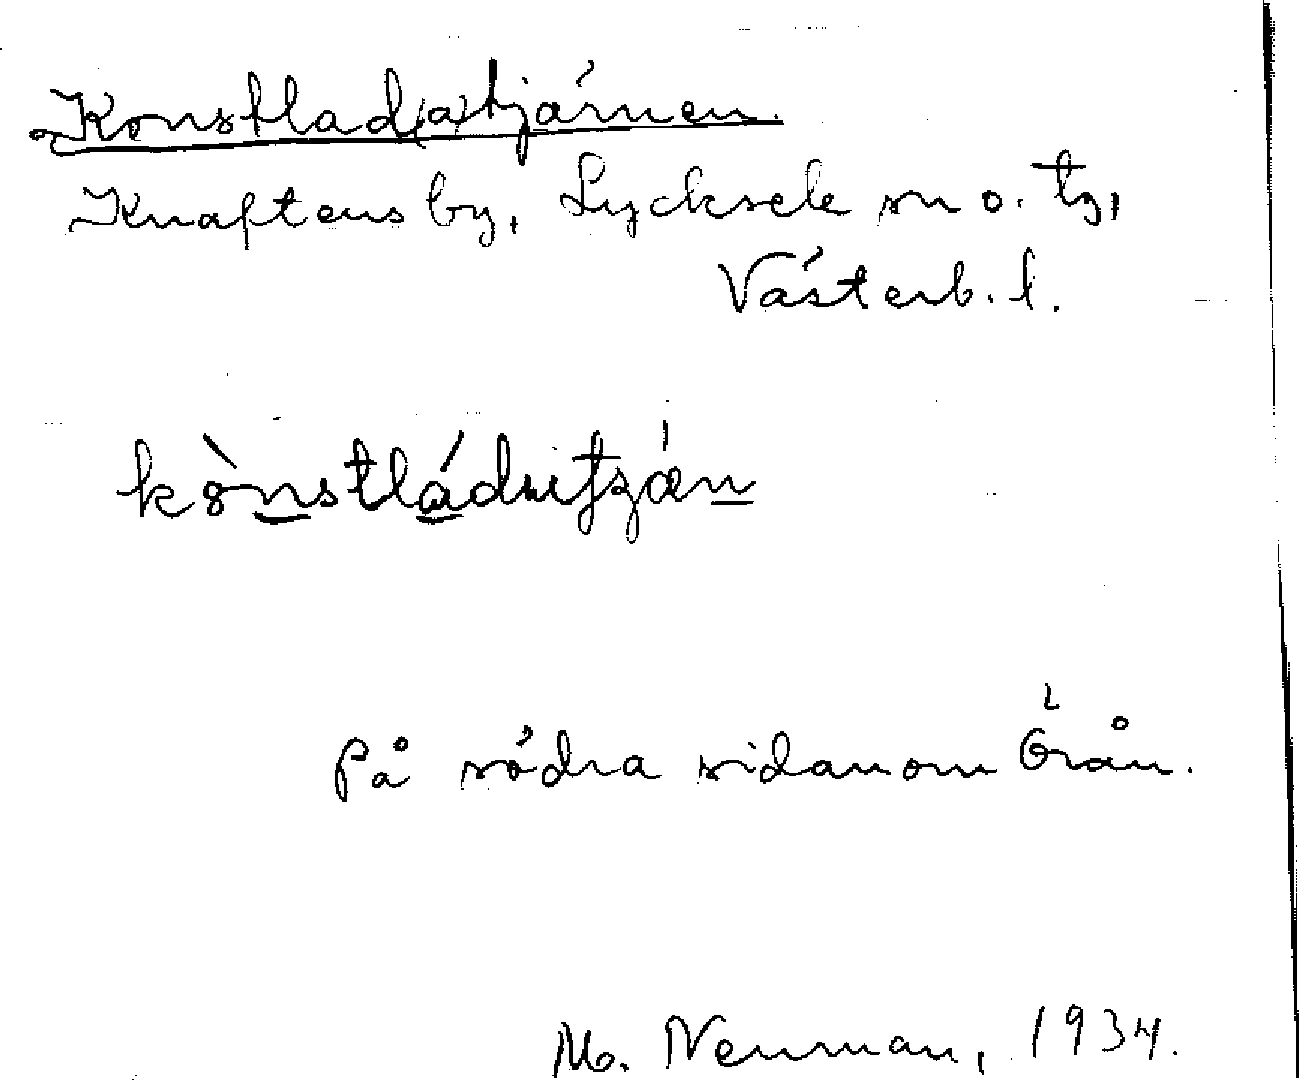 Konstlad(a)tjärnen.
Knaftens by, Lycksele sn o. tg,
Västerb. l.
På södra sidan om Örån.
M. Neuman, 1934.